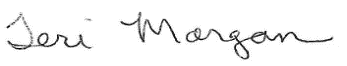 Teri Morgan